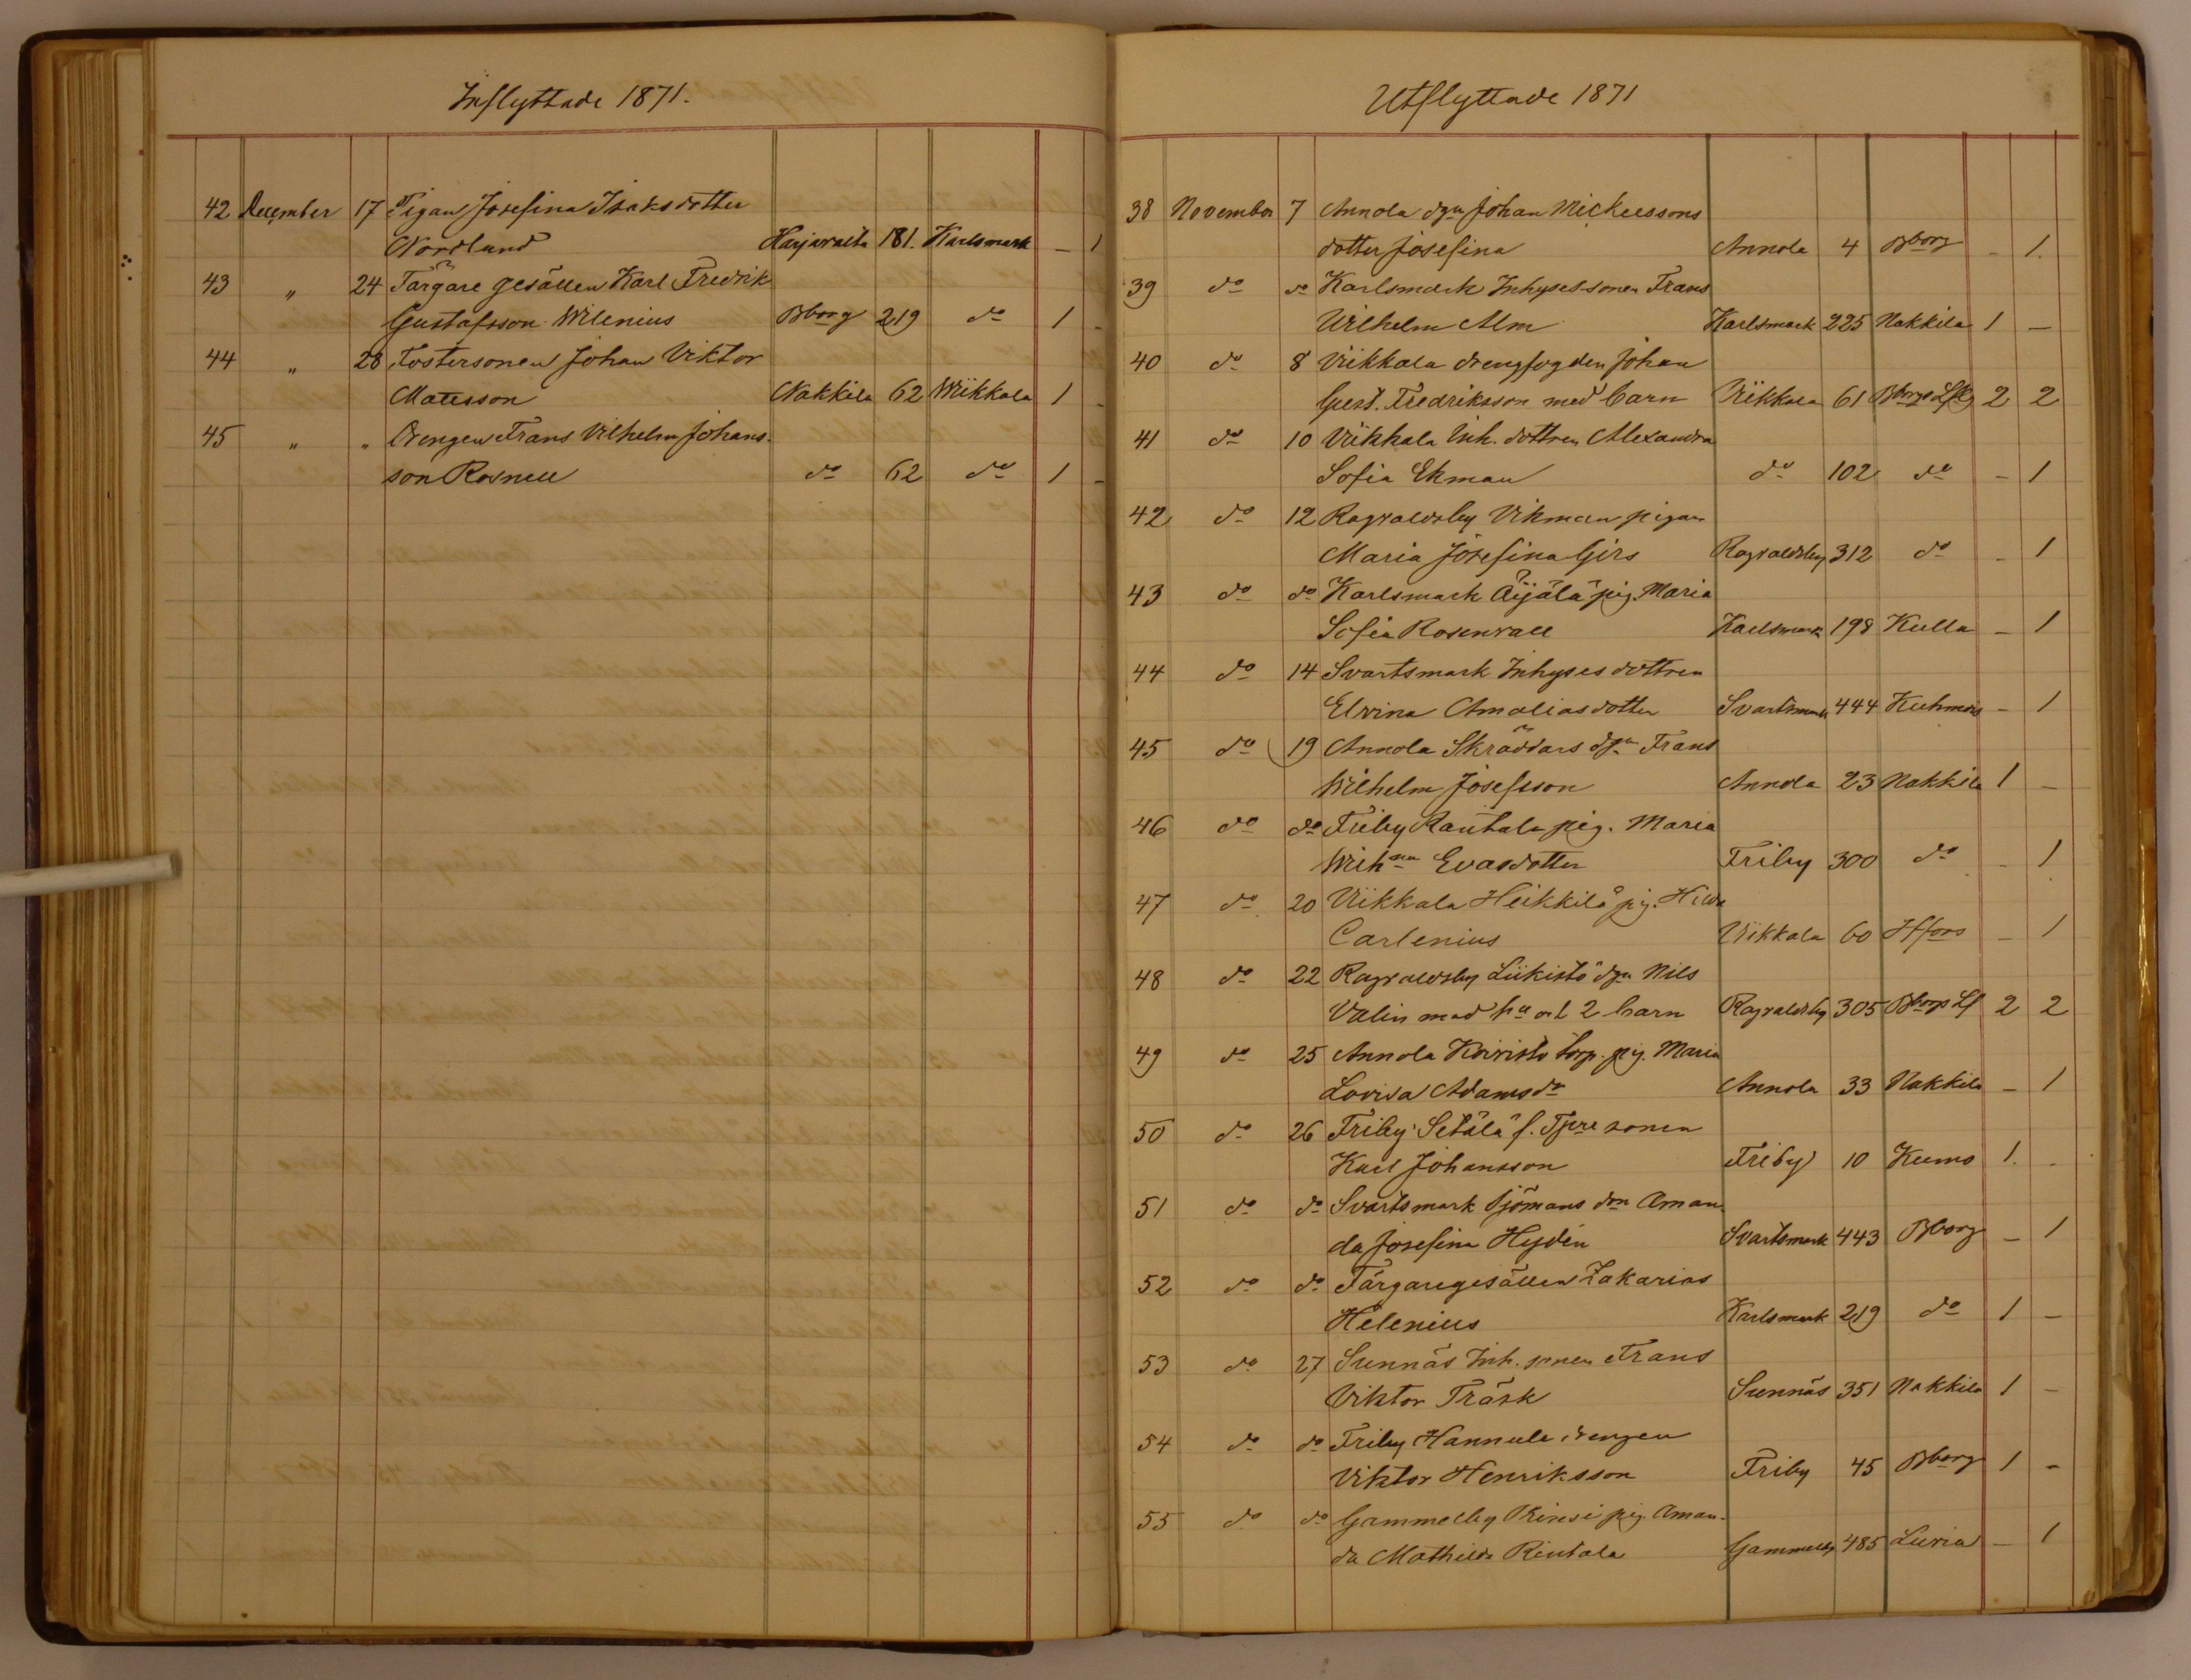 Inflyttade 1871.
42 December 17 Pigan Josefina Isaksdotter
Nordlund Harjavalta 181. Karlsmark – 1
43 " 24 Färgare gesällen Karl Fredrik
Gustafsson Wilenius Bborg 219 do 1 –
44 " 28 Fostersonen Johan Viktor
Matesson Nakkila 62 Wiikkala 1 –
45 " " Drengen Frans Vilhelm Johans-
son Rosnell do 62 do 1 –
Utflyttade 1871
38 November 7 Annola dgn Johan Mickelssons
dotter Josefina Annola 4 Bborg – 1.
39 do do Karlsmark Inhyses-sonen Frans
Wilhelm Alm Karlsmark 225 Nakkila 1 –
40 do 8 Viikkala drengfogden Johan
Gust. Fredriksson med barn Viikkala 61 Bborgs Lfs 2 2
41 do 10 Viikkala Inh. dottren Alexandra
Sofia Ekman do 102 do – 1
42 do 12 Ragvaldsby Vikman pigan
Maria Josefina Girs Ragvaldsby 312 do – 1
43 do do Karlsmark Äijälä pig. Maria
Sofia Rosenvall Karlsmark 198 Kulla – 1
44 do 14 Svartsmark Inhyses dottren
Elvina Amaliasdotter Svartsmark 444 – 1
45 do 19 Annola Skräddars dgn Frans
Wilhelm Josefsson Annola 23 Nakkila 1 –
46 do do Friby Rantala pig. Maria
Evasdotter Friby 300 do – 1
47 do 20 Viikkala Heikkilä pig. Hilda
Carlenius Viikkala 60 Hfors – 1
48 do 22 Ragvaldsby Liikisto dgn Nils
Valin med hu och 2 barn Ragvaldsby 305 Bborgs Lf 2 2
49 do 25 Annola Koivisto torp. pig. Maria
Lovisa Adamsdr Annola 33 Nakkila – 1
50 do 26 Friby Setälä f. Tpre sonen
Karl Johansson Friby 10 Kumo 1. –
51 do do Svartsmark Sjömans don Aman-
da Josefina Hydén Svartsmark 443 Bborg – 1
52 do do Färgaregesällen Zakarias
Helenius Karlsmark 219 do 1 –
53 do 27 Sunnäs Inh. sonen Frans
Viktor Träsk Sunnäs 351 Nakkila 1 –
54 do do Friby Hannula drengen
Viktor Henriksson Friby 45 Bborg 1 –
55 do do Gammelby Prinsi pig. Aman-
da Mathilda Rintala Gammelby 485 Luvia – 1